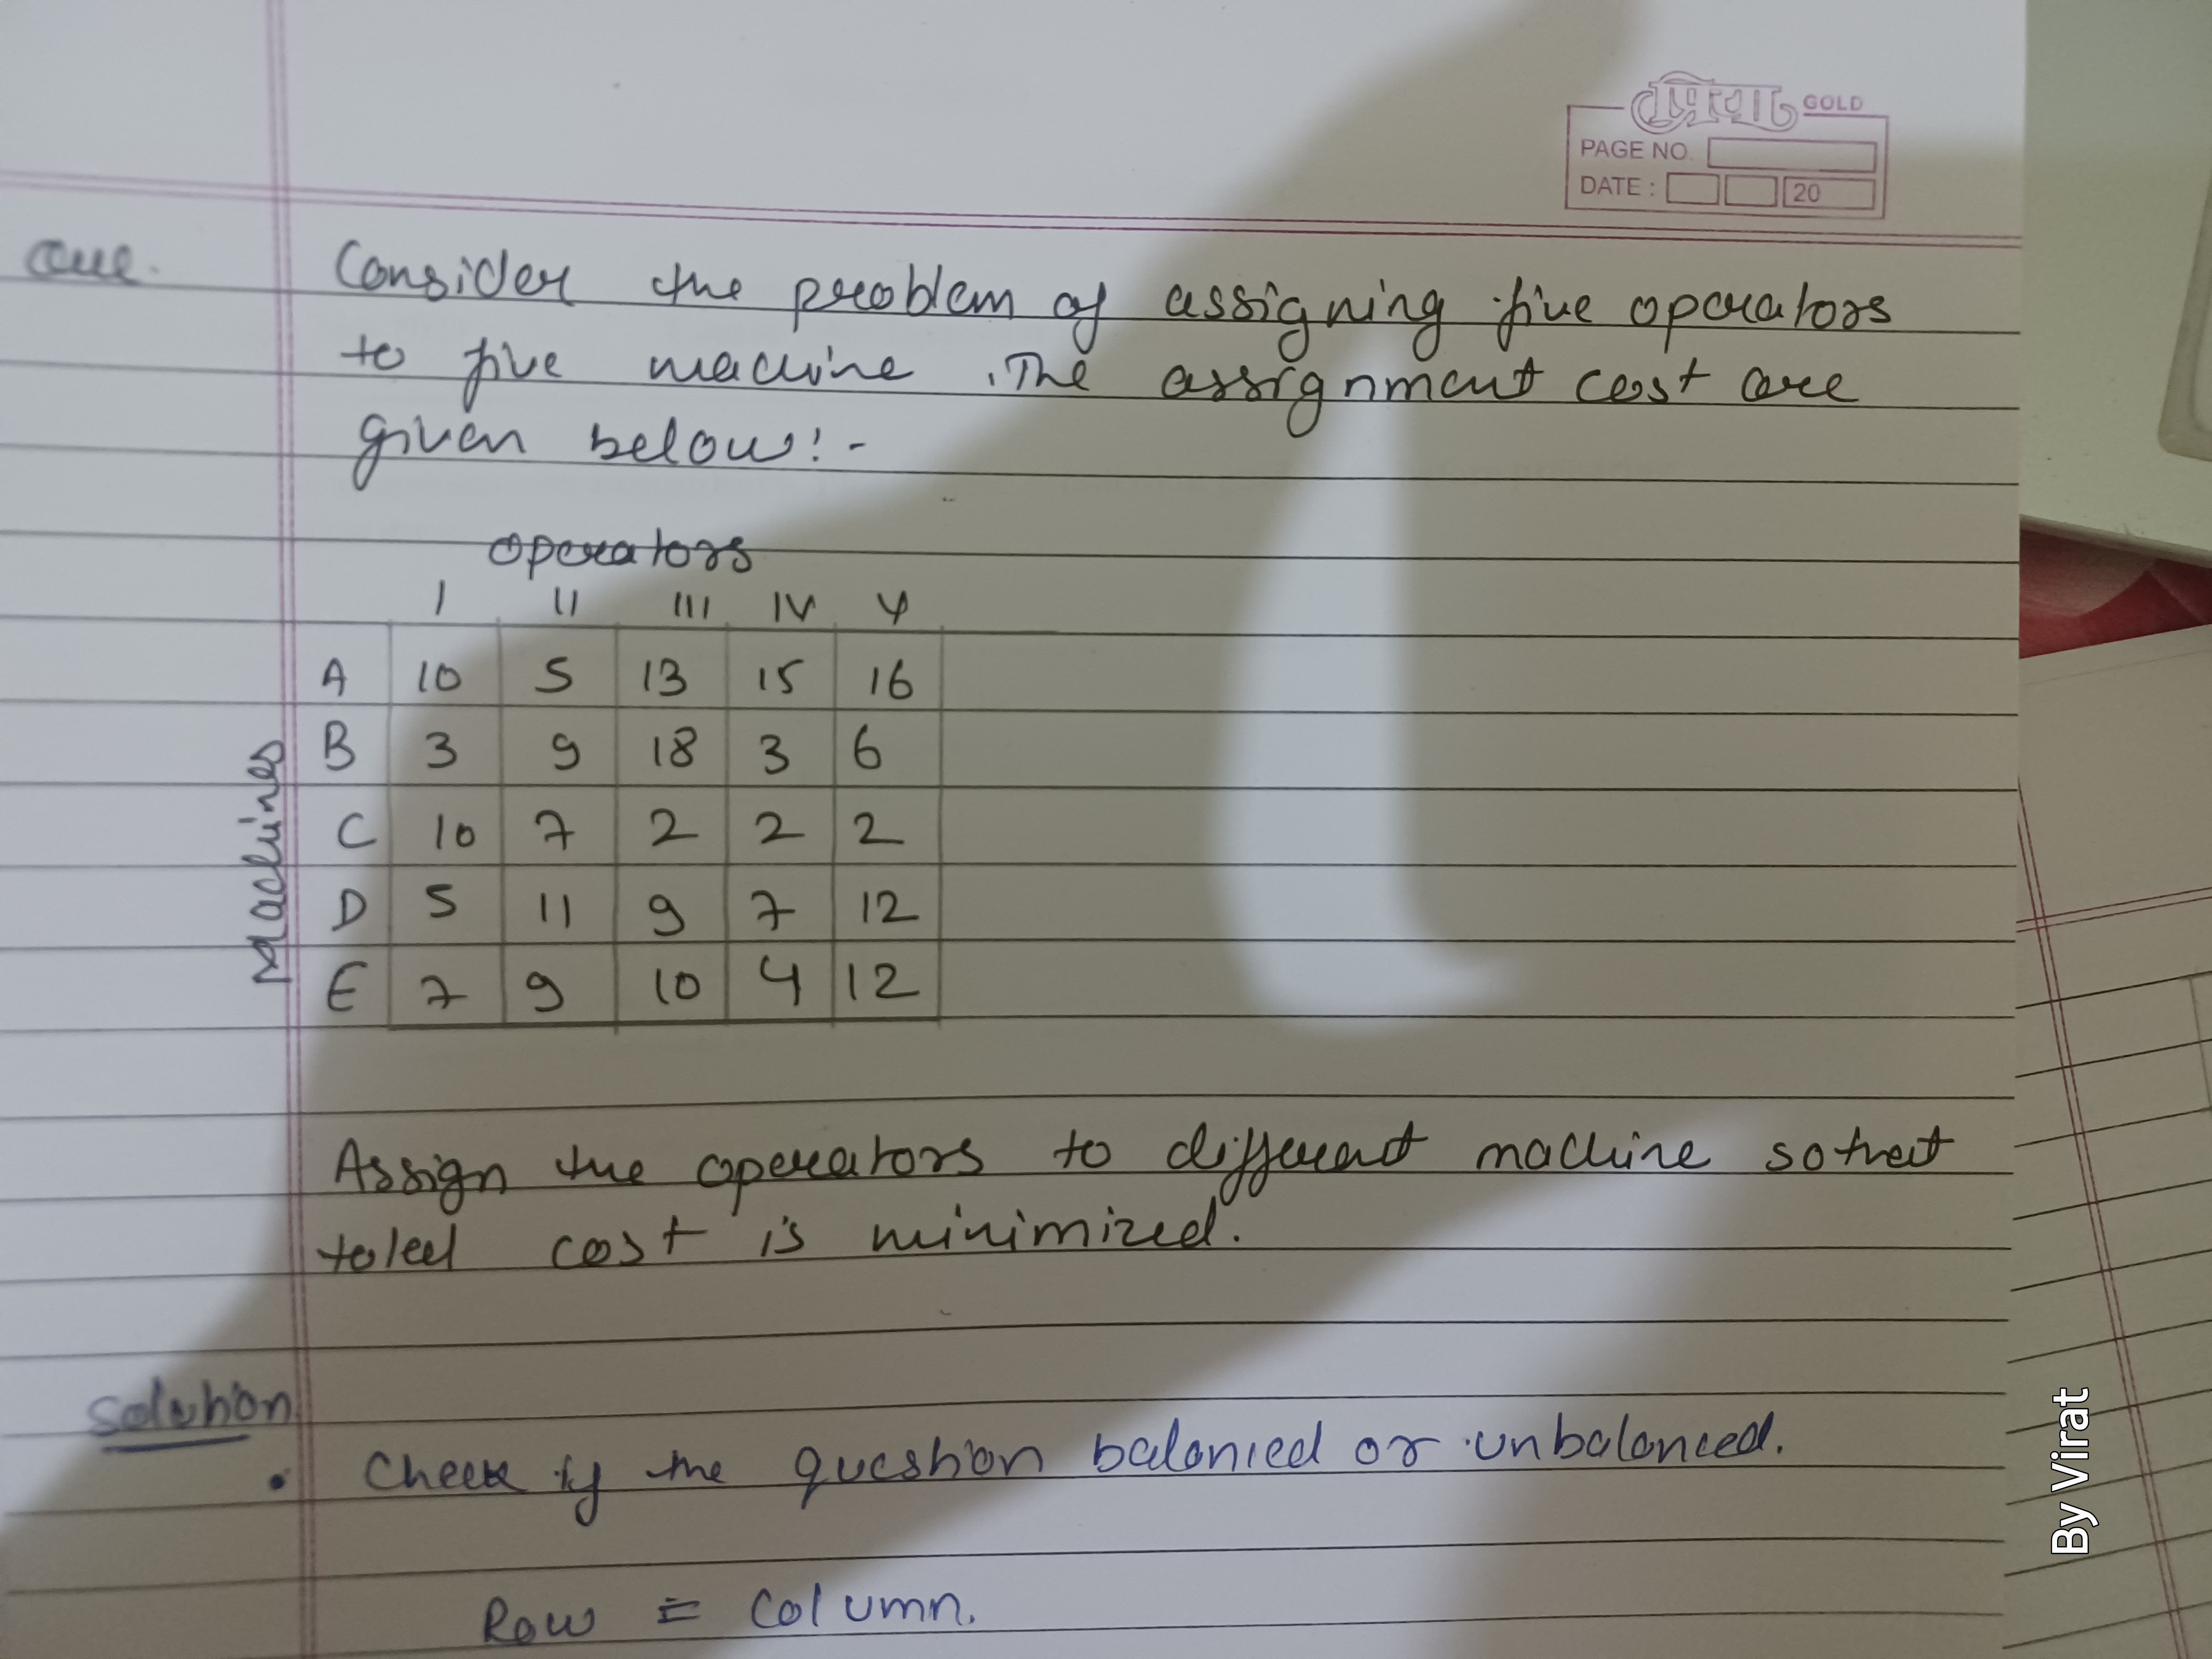 GOLD
PAGE NO.
DATE: 20
Que. Consider the problem of assigning five operators
to five machine. The assignment cost are
given below:-
Operators
I II III IV V
Machines
A 10 5 13 15 16
B 3 9 18 3 6
C 10 7 2 2 2
D 5 11 9 7 12
E 7 9 10 4 12
Assign the operators to different machine so that
total cost is minimized.
Solution.
• Check if the question balanced or unbalanced.
Row = Column.
By Virat